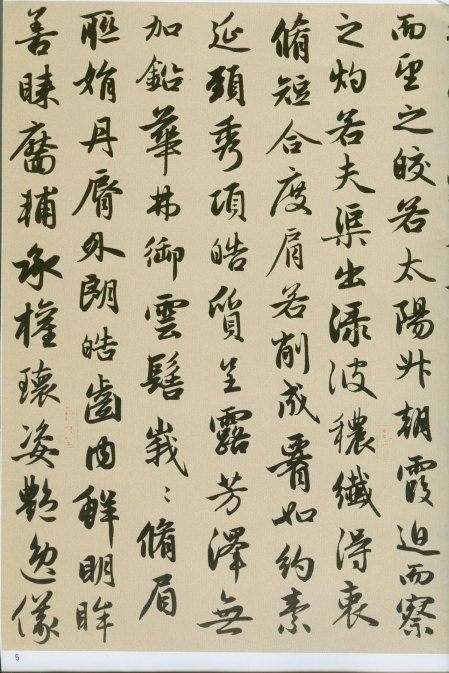 而望之皎若太陽升朝霞迫而察
之灼若夫渠出淥波穠纖得衷
脩短合度肩若削成腰如約素
延頸秀項皓質呈露芳澤無
加鉛華弗御雲髻峩〻脩眉
聯娟丹脣外朗皓齒内鮮明眸
善睞靨輔承權瓌姿豔逸儀
5